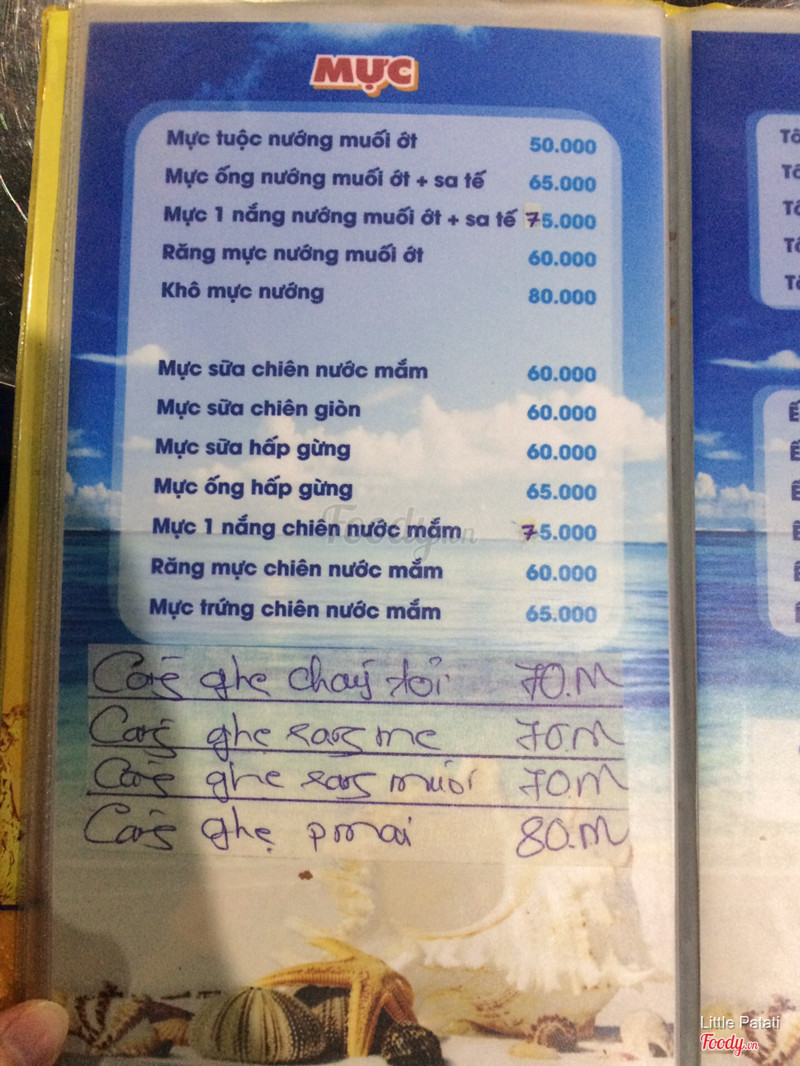 MỰC
Mực tuộc nướng muối ớt 50.000
Mực ống nướng muối ớt + sa tế 65.000
Mực 1 nắng nướng muối ớt + sa tế 75.000
Răng mực nướng muối ớt 60.000
Khô mực nướng 80.000
Mực sữa chiên nước mắm 60.000
Mực sữa chiên giòn 60.000
Mực sữa hấp gừng 60.000
Mực ống hấp gừng 65.000
Mực 1 nắng chiên nước mắm 75.000
Răng mực chiên nước mắm 60.000
Mực trứng chiên nước mắm 65.000
Càng ghẹ cháy tỏi 70.M
Càng ghẹ rang me 70.M
Càng ghẹ rang muối 70.M
Càng ghẹ pmai 80.M
Foody.vn
Little Patati
Foody.vn